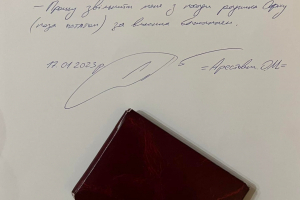 - Прошу звільнити мене з посади радника Офісу
(поза штатом) за власним бажанням.
17.01.2023р. =Арестович О.М=